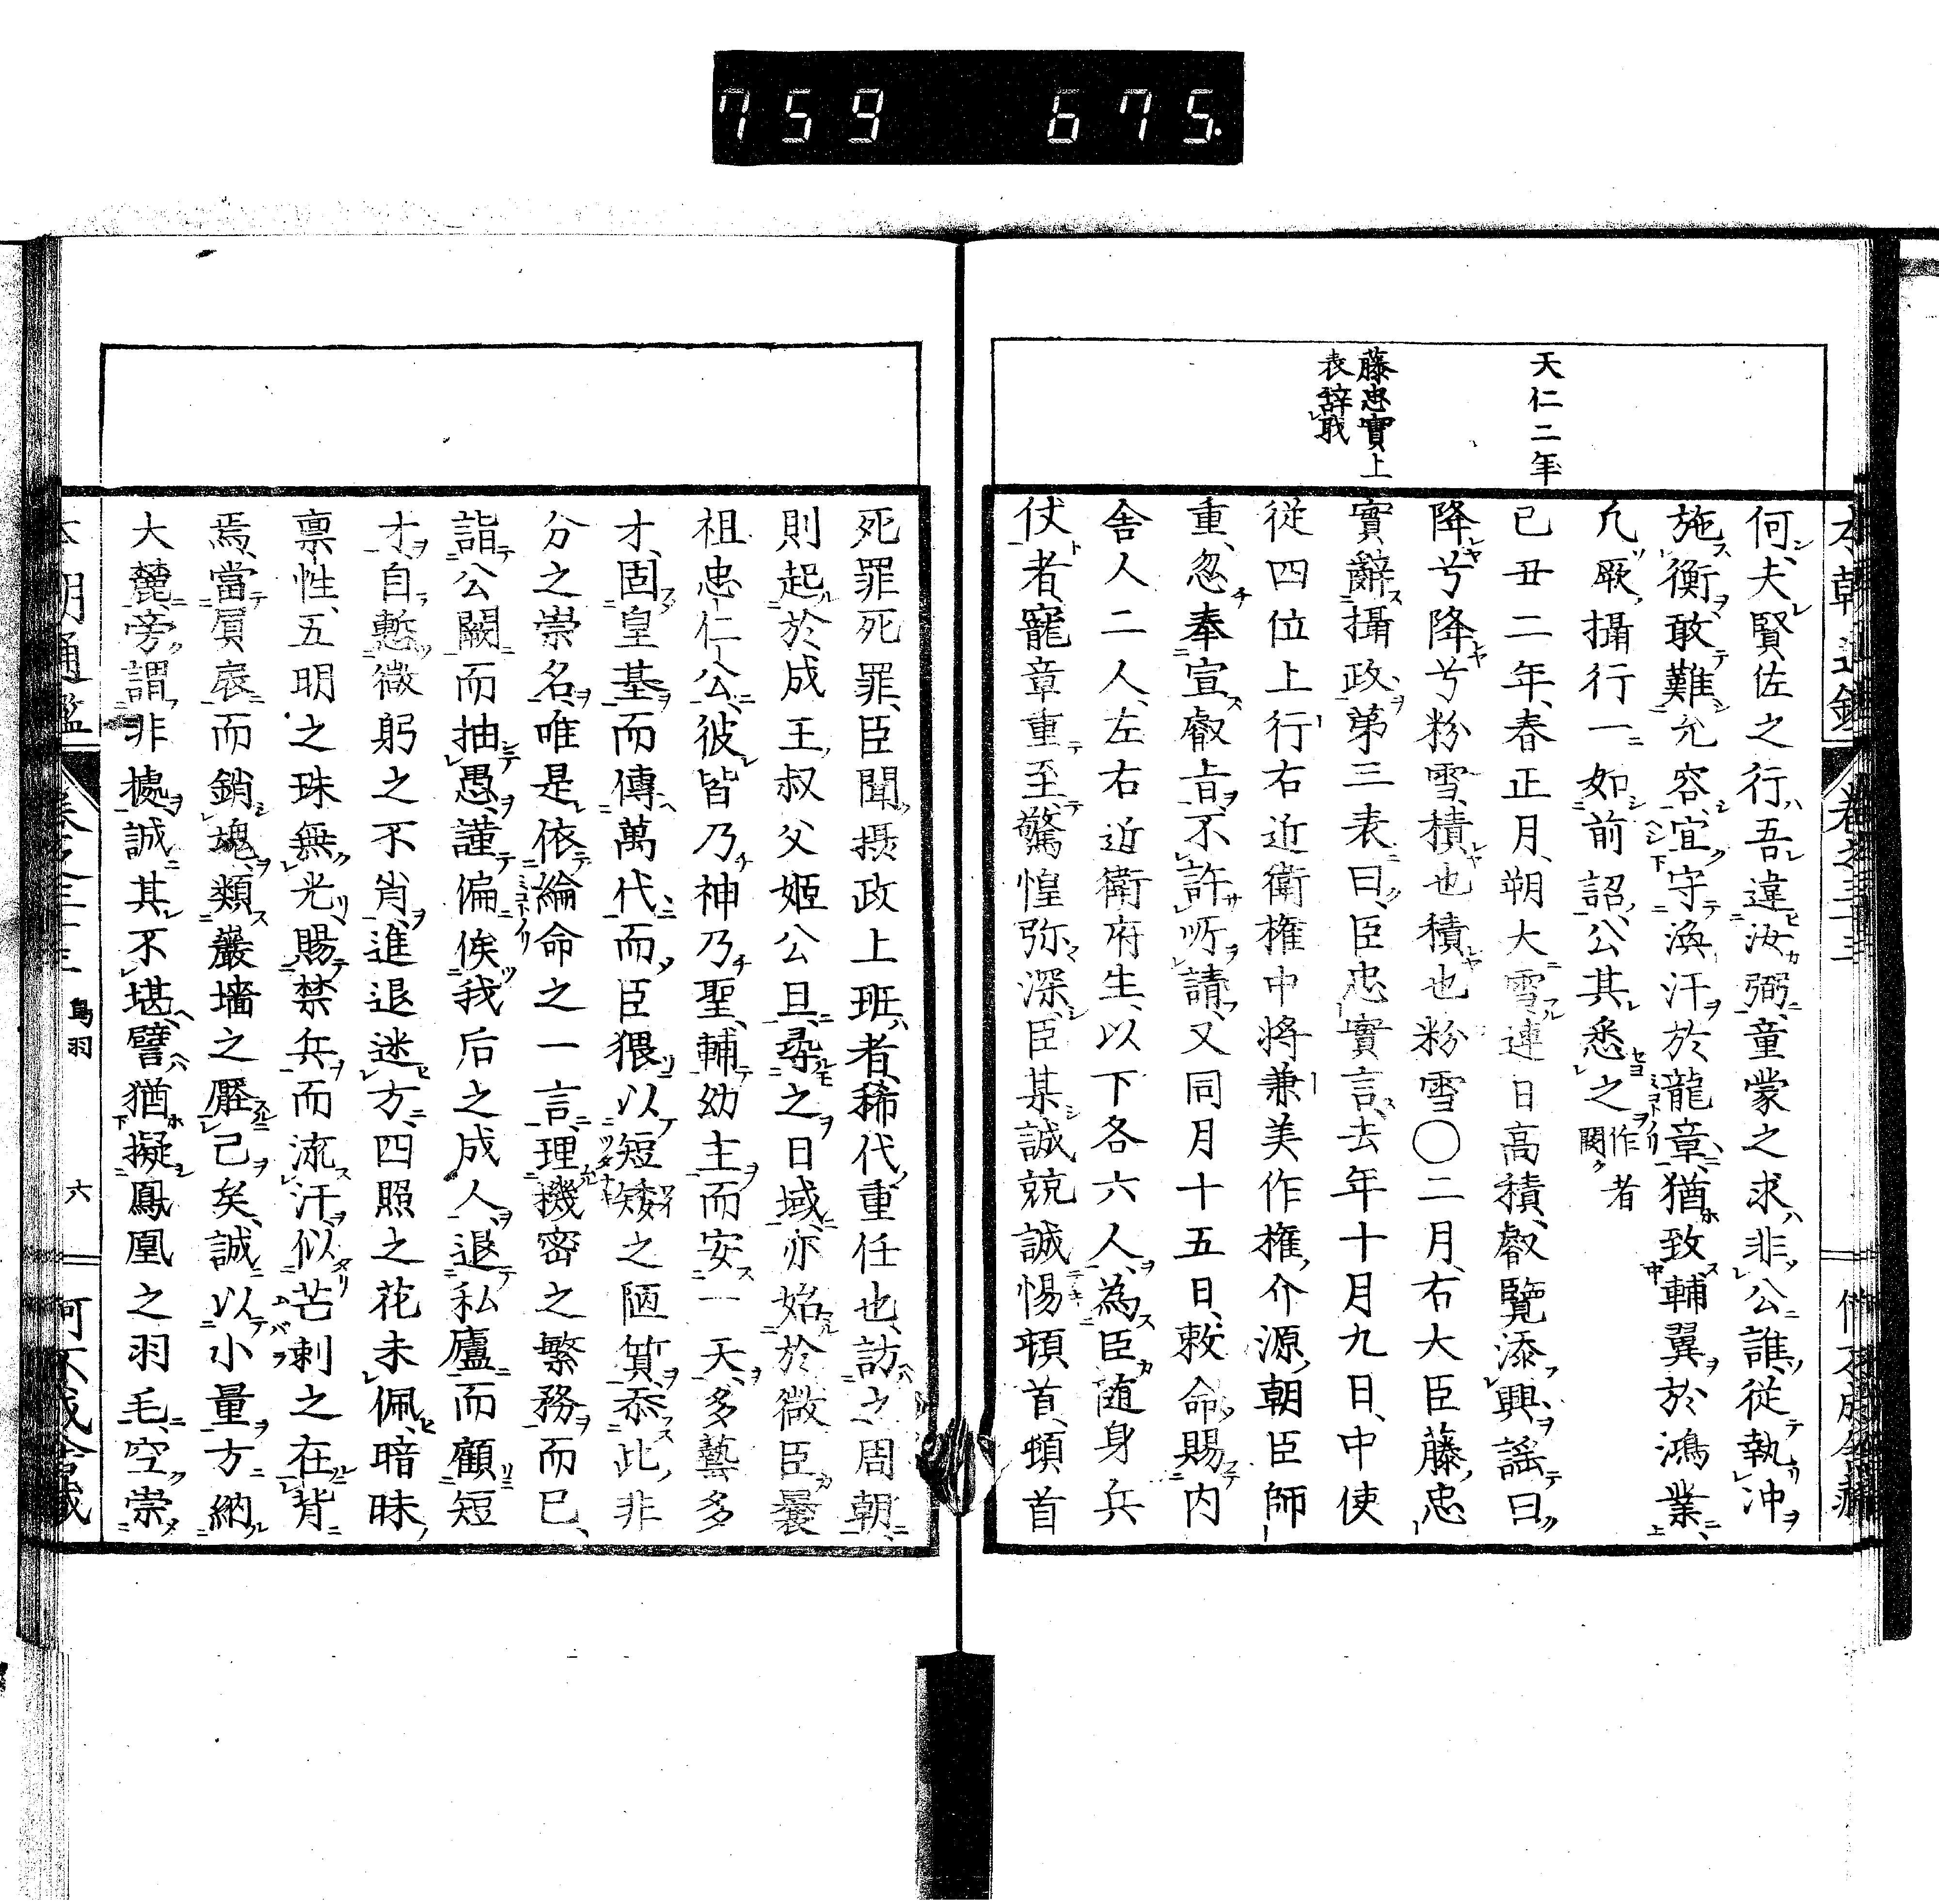 759 675.
天仁二年
藤忠實上
表辭戝
何夫賢佐之行吾違汝弼童蒙之求非公誰從執沖
施衡敢難允容宜守渙汗於龍章猶致輔翼於鴻業
凡厥攝行一如前詔公其悉之作者闕
己丑二年春正月朔大雪連日高積叡覽添興謠曰
降兮降兮粉雪積也積也粉雪〇二月右大臣藤忠
實辭攝政第三表曰臣忠實言去年十月九日中使
從四位上行右近衛權中將兼美作權介源朝臣師
重忽奉宣叡旨不許所請又同月十五日敕命賜內
舍人二人左右近衛府生以下各六人為臣随身兵
仗者寵章重至驚惶弥深臣某誠兢誠惕頓首頓首
死罪死罪臣聞摂政上班者稀代重任也訪之周朝
則起於成王叔父姬公旦尋之日域亦始於微臣曩
祖忠仁公彼皆乃神乃聖輔幼主而安一天多藝多
才固皇基而傳萬代而臣猥以短矮之陋質忝此非
分之崇名唯是依綸命之一言理機密之繁務而已
詣公闕而抽愚謹偏俟我后之成人退私廬而顧短
才自慙微躬之不肖進退迷方四照之花未佩暗昧
禀性五明之珠無光賜禁兵而流汗似芒刺之在背
焉當屓扆而銷魂類巖墻之壓己矣誠以小量方納
大麓旁謂非據誠其不堪譬猶擬鳳凰之羽毛空崇
鳥羽
六